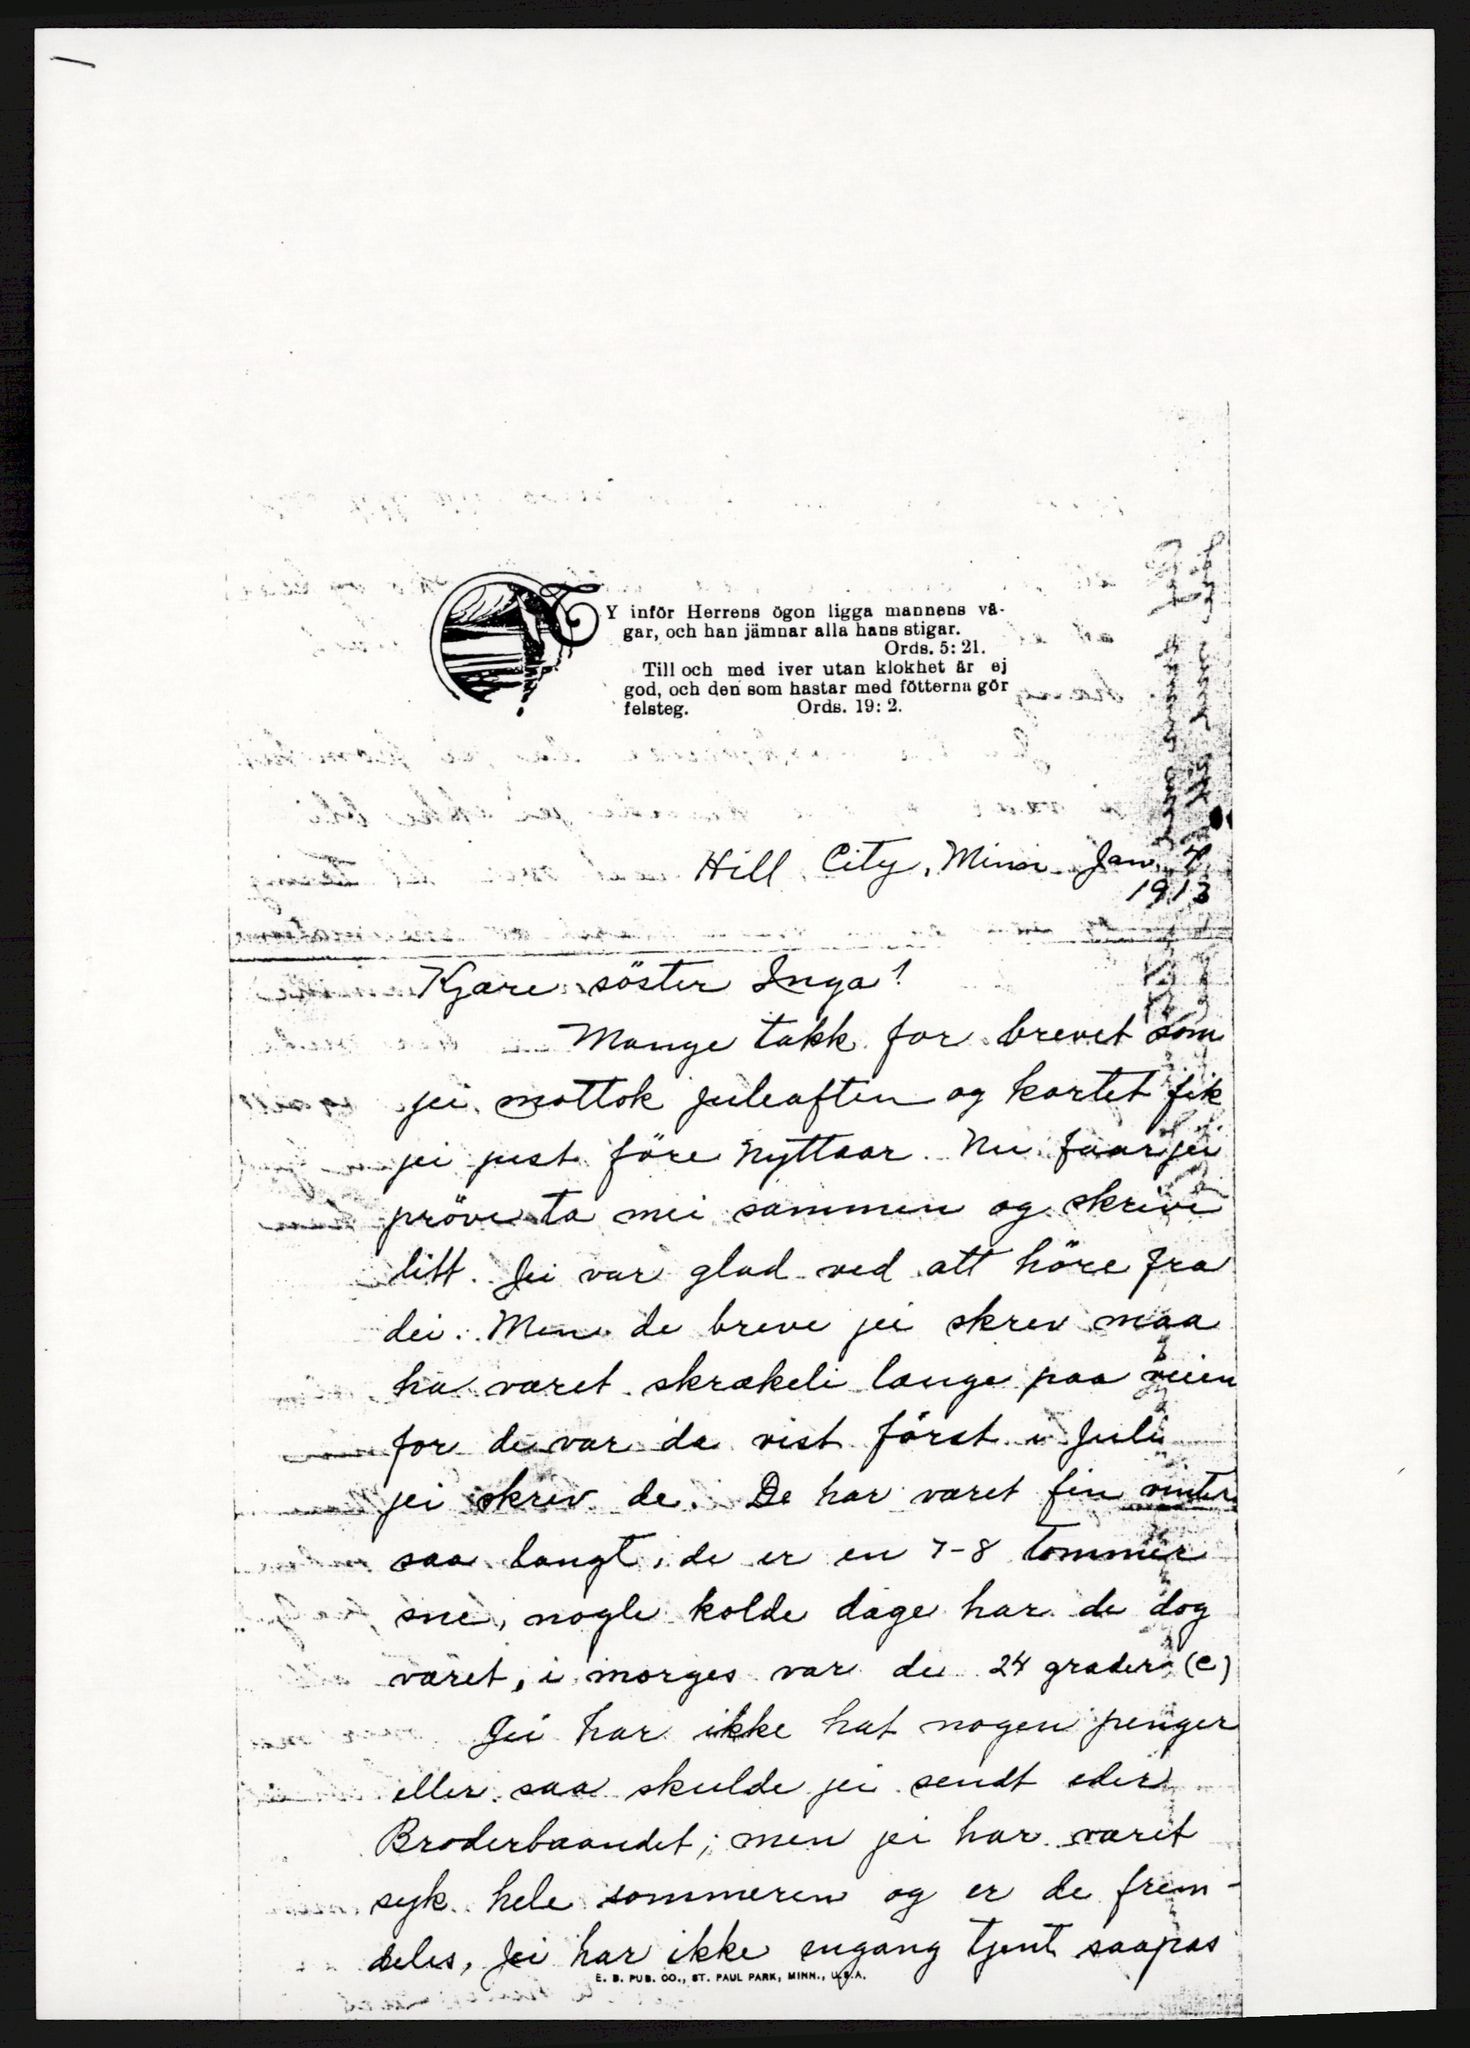 TY inför Herrens ögon ligga mannens vä-
gar, och han jämnar alla hans stigar.
Ords. 5: 21.
Till och med iver utan klokhet är ej
god, och den som hastar med fötterna gör
felsteg. Ords. 19: 2.
Hill City, Minn Jan. 7
1913
Kjære söster Inga!
Mange takk for brevet som
jei mottok juleaften og kortet fik
jei just före nyttaar. Nu faar jei
pröve ta mei sammen og skrive
litt. Jei var glad ved att höre fra
dei. Men de breve jei skrev maa
ha været skrækeli længe paa veien
for de var da vist först i Juli
jei skrev de. De har været fin vinter
saa langt, de er en 7-8 tommer
sne, nogle kolde dage har de dog
været, i morges var de 24 grader (C)
Jei har ikke hat nogen penger
eller saa skulde jei sendt eder
Broderbaandet; men jei har været
syk hele sommeren og er de frem-
deles, Jei har ikke engang tjent saapas
E. B. PUB. CO., ST. PAUL PARK, MINN., U.S.A.